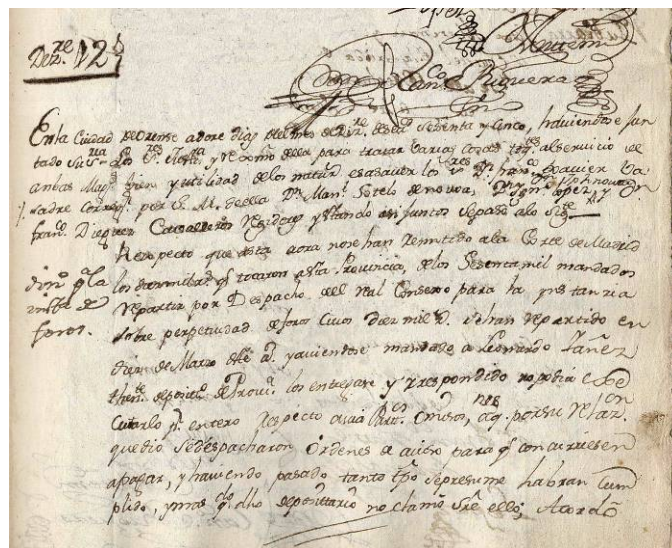 Dez.re 12
En la Ciudad de Orense a doze dias del mes de Diz.re de Setenta y Cinco, haviendose jun
tado Su S.ria Los S.res Just.a y rexim.to della para tratar varias cosas tocantes al servicio de
ambas Mag.s bien y utilidad de los natur. es a saver los S.res D.n Fran.co Joaquin Va
ladre Correg.r por S. M. de ella D.n Man.l Sotelo de novoa, D.n Ign.o Lopez, y D.n
Fran.co Dieguez Cavalleros Rexidores y estando asi juntos se paso a lo Sig.te
Respecto que asta aora no se han remitido a la Corte de Madrid
din.o p.a la
los dozemil rs. q.e tocaron a esta Provincia, de los Sesenta mil mandados
instz.a de
repartir por Despacho del real Consexo para la ynstanzia
foros.
sobre perpetuidad de foros Cuios doze mil rs. se han repartido en
diez de Marzo de este a.o y aviendose mandado a Leonardo Yañez
then.te deposit.o de Prov.a los entregase y respondido no podia exe
Cutarlo p.r entero respecto avia Part.s omisos, a q.e por su relaz.on
que dio se despacharon Ordenes de aviso para q.e concurriesen
a pagar, y haviendo pasado tanto tpo se presume habran Cum
plido, y mas q.do dho depositario no clamo S.re ello; Acordó